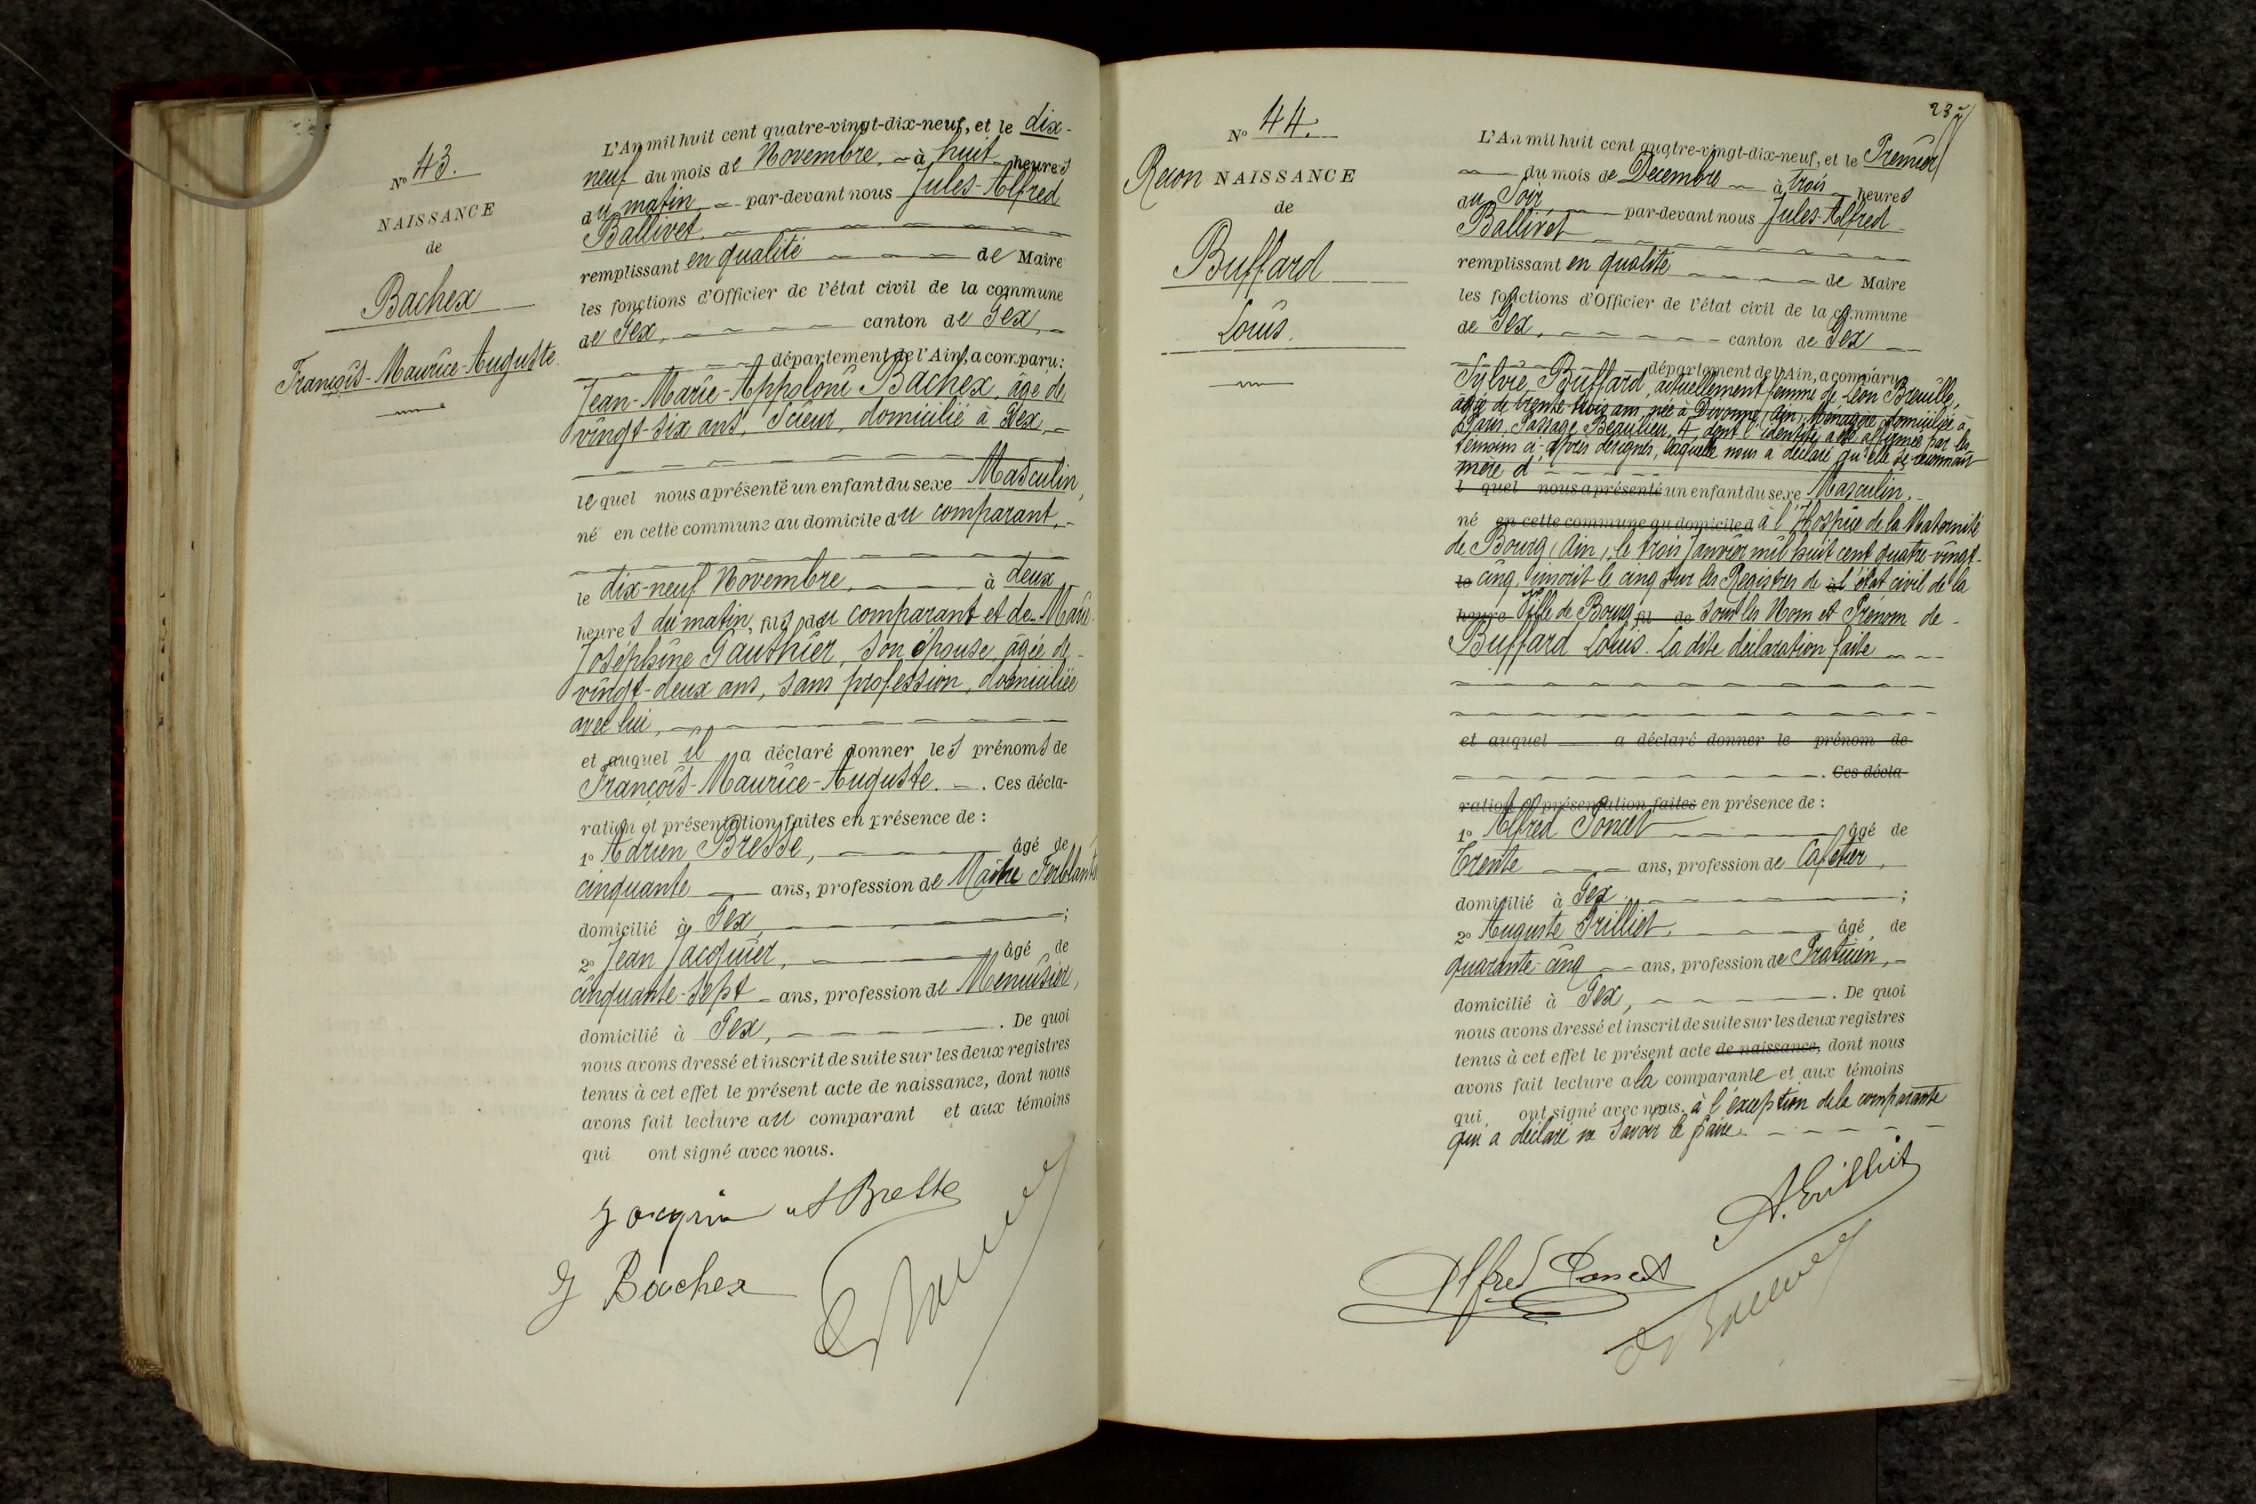 Nº 43.
NAISSANCE
de
Bachex
François-Maurice-Auguste
L'An mil huit cent quatre-vingt-dix-neuf, et le dix-
neuf du mois de Novembre, à huit heures
du matin, par-devant nous Jules-Alfred
Ballivet,
remplissant en qualité de Maire
les fonctions d'Officier de l'état civil de la commune
de Gex, canton de Gex,
département de l'Ain, a comparu:
Jean-Marie-Appoloni Bachex, âgé de
vingt-six ans, Scieur, domicilié à Gex,
lequel nous a présenté un enfant du sexe Masculin,
né en cette commune au domicile du comparant,
le dix-neuf Novembre, à deux
heures du matin, fils du comparant et de Marie-
Joséphine Gauthier, son épouse, âgée de
vingt-deux ans, sans profession, domiciliée
avec lui,
et auquel il a déclaré donner les prénoms de
François-Maurice-Auguste. Ces décla-
ration et présentation faites en présence de :
1º Adrien Bresse, âgé de
cinquante ans, profession de Maître Ferblantier
domicilié à Gex, ;
2º Jean Jacquier, âgé de
cinquante-sept ans, profession de Menuisier,
domicilié à Gex, . De quoi
nous avons dressé et inscrit de suite sur les deux registres
tenus à cet effet le présent acte de naissance, dont nous
avons fait lecture au comparant et aux témoins
qui ont signé avec nous.
A Bresse
J Bachex
237
Nº 44.
Recon NAISSANCE
de
Buffard
Louis.
L'An mil huit cent quatre-vingt-dix-neuf, et le Premier
du mois de Décembre à trois heures
du Soir par-devant nous Jules-Alfred
Ballivet
remplissant en qualité de Maire
les fonctions d'Officier de l'état civil de la commune
de Gex, canton de Gex
département de l'Ain, a comparu
Sylvie Buffard, actuellement femme de Léon Breuillé,
âgée de trente trois ans, née à Divonne, Ain, Ménagère, domiciliée à
Paris, Passage Beaulieu, 4, dont l'identité a été affirmée par les
témoins ci-après désignés, laquelle nous a déclaré qu'elle se reconnait
mère d'
l quel nous a présenté un enfant du sexe Masculin.
né en cette commune au domicile d à l'Hospice de la Maternité
de Bourg, Ain, le trois Janvier mil huit cent quatre-vingt-
le cinq, inscrit le cinq sur les Registres de à l'état civil de la
heure Ville de Bourg fil de sous les Nom et Prénom de
Buffard Louis. La dite déclaration faite
et auquel a déclaré donner le prénom de
. Ces décla-
ration et présentation faites en présence de :
1º Alfred Poncet âgé de
Trente ans, profession de Cafetier,
domicilié à Gex ;
2º Auguste Trilliet, âgé de
quarante-cinq ans, profession de Praticien,
domicilié à Gex, . De quoi
nous avons dressé et inscrit de suite sur les deux registres
tenus à cet effet le présent acte de naissance, dont nous
avons fait lecture a la comparante et aux témoins
qui ont signé avec nous. à l'exception de la comparante
qui a déclaré ne savoir le faire.
A. Trilliet
Alfred Poncet